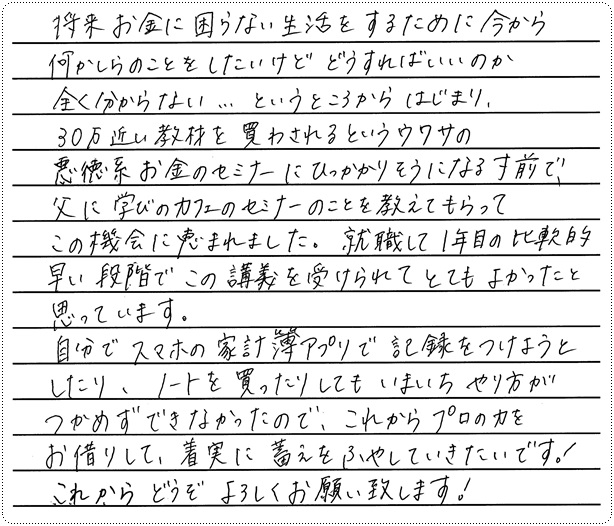 将来お金に困らない生活をするために今から
何かしらのことをしたいけど どうすればいいのか
全く分からない… というところから はじまり、
30万近い教材を買わされるというウワサの
悪徳系お金のセミナーにひっかかりそうになる寸前で、
父に学びのカフェのセミナーのことを教えてもらって
この機会に恵まれました。就職して1年目の比較的
早い段階でこの講義を受けられてとてもよかったと
思っています。
自分でスマホの家計簿アプリで記録をつけようと
したり、ノートを買ったりしてもいまいちやり方が
つかめずできなかったので、これからプロの力を
お借りして、着実に蓄えをふやしていきたいです！
これからどうぞよろしくお願い致します！